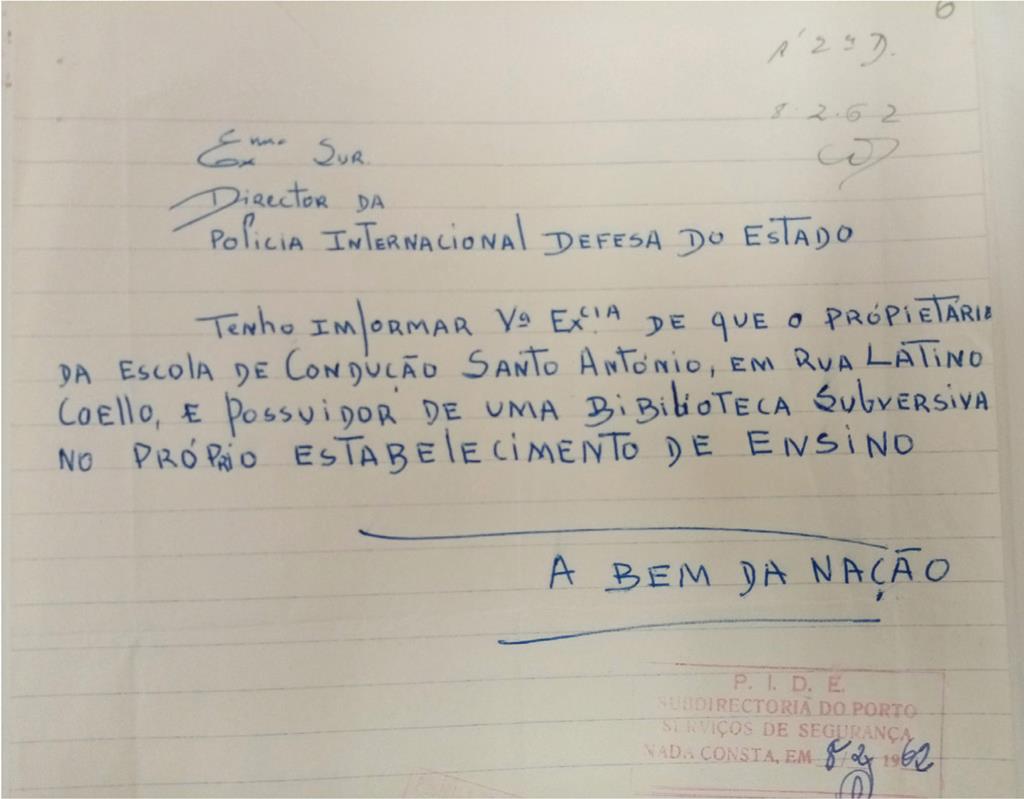 6
A' 2ª D.
8.2.62
Exmo. Snr.
Director da
Policia Internacional Defesa do Estado
Tenho imformar Vª Excia. de que o própietário
da Escola de Condução Santo António, em Rua Latino
Coello, e possuidor de uma bibilioteca subversiva
no próprio estabelecimento de ensino
A BEM DA NAÇÃO
P. I. D. E.
SUBDIRECTORIA DO PORTO
SERVIÇOS DE SEGURANÇA
NADA CONSTA, EM 8/2/1962